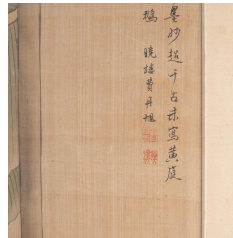 墨妙超千古未寫黃庭
鵝
曉樓費丹旭